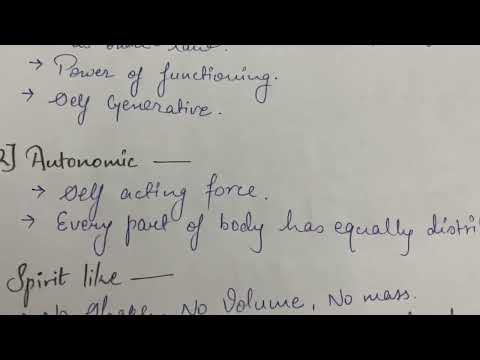 → Power of functioning.
→ Self Generative.
2] Autonomic —
→ Self acting force.
→ Every part of body has equally distri
Spirit like —
No Shape, No Volume, No mass.